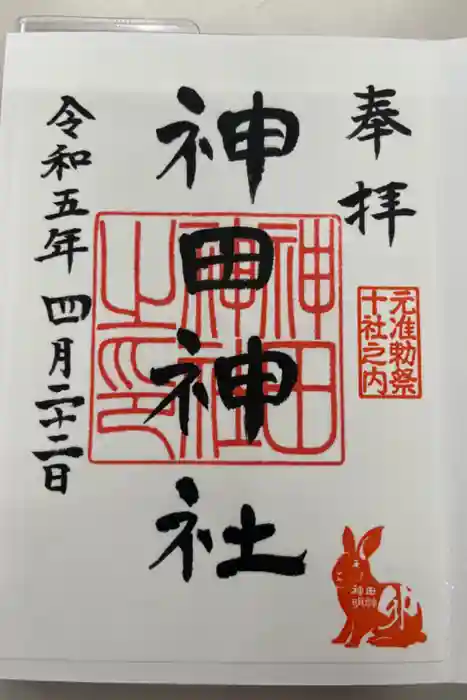 奉拝
元准勅祭
十社之内
神田神社
神田神社之印
令和五年 四月二十二日
卯
神田
明神